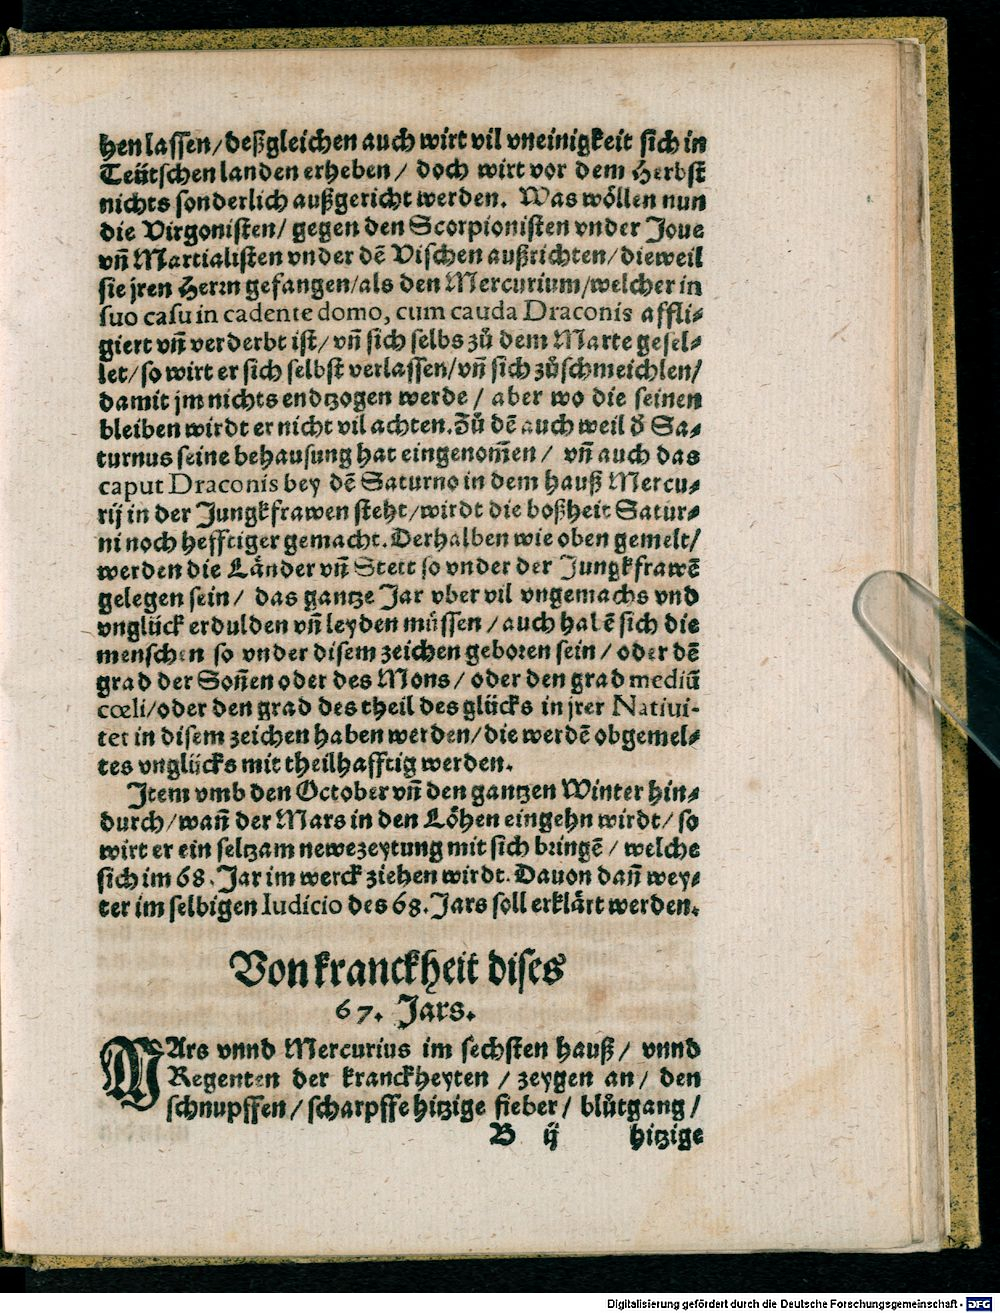 hen lassen/ deßgleichen auch wirt vil vneinigkeit sich in
Teütschen landen erheben/ doch wirt vor dem Herbst
nichts sonderlich außgericht werden. Was wöllen nun
die Virgonisten/ gegen den Scorpionisten vnder Joue
vñ Martialisten vnder dē Vischen außrichten/ dieweil
sie jren Herrn gefangen/ als den Mercurium/ welcher in
suo casu in cadente domo, cum cauda Draconis affli⸗
giert vñ verderbt ist/ vñ sich selbs zů dem Marte gesel⸗
let/ so wirt er sich selbst verlassen/ vñ sich zůschmeichlen/
damit jm nichts endtzogen werde/ aber wo die seinen
bleiben wirdt er nicht vil achten. Zů dē auch weil d̕ Sa⸗
turnus seine behausung hat eingenom̃en/ vñ auch das
caput Draconis bey dē Saturno in dem hauß Mercu⸗
rij in der Jungkfrawen steht/ wirdt die boßheit Satur⸗
ni noch hefftiger gemacht. Derhalben wie oben gemelt/
werden die Länder vñ Stett so vnder der Jungkfrawē
gelegen sein/ das gantze Jar vber vil vngemachs vnd
vnglück erdulden vñ leyden müssen/ auch habē sich die
menschen so vnder disem zeichen geboren sein/ oder dē
grad der Son̄en oder des Mons/ oder den grad mediū
cœli/ oder den grad des theil des glücks in jrer Natiui-
tet in disem zeichen haben werden/ die werdē obgemel⸗
tes vnglücks mit theilhafftig werden.
Item vmb den October vñ den gantzen Winter hin⸗
durch/ wañ der Mars in den Löhen eingehn wirdt/ so
wirt er ein seltzam newezeytung mit sich bringē/ welche
sich im 68. Jar im werck ziehen wirdt. Dauon dañ wey⸗
ter im selbigen Iudicio des 68. Jars soll erklärt werden.
Von kranckheit dises
67. Jars.
MArs vnnd Mercurius im sechsten hauß/ vnnd
Regenten der kranckheyten/ zeygen an/ den
schnupffen/ scharpffe hitzige fieber/ blůtgang/
B ij hitzige
Digitalisierung gefördert durch die Deutsche Forschungsgemeinschaft - DFG